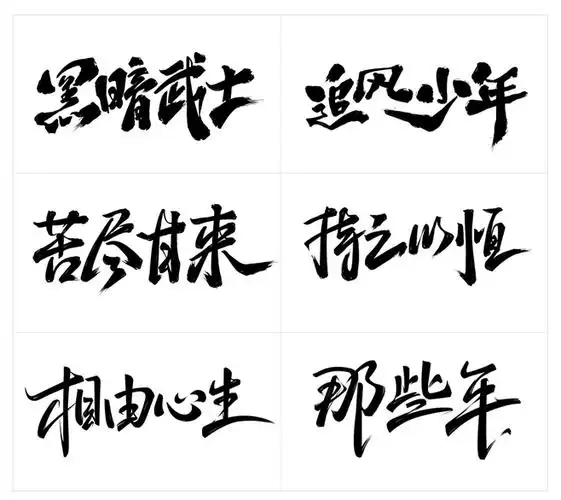 黑暗武士
追风少年
苦尽甘来
持之以恒
相由心生
那些年